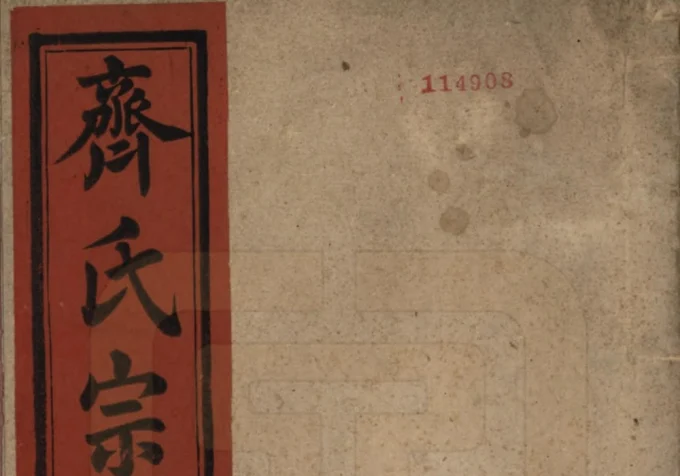 齊氏宗
114908